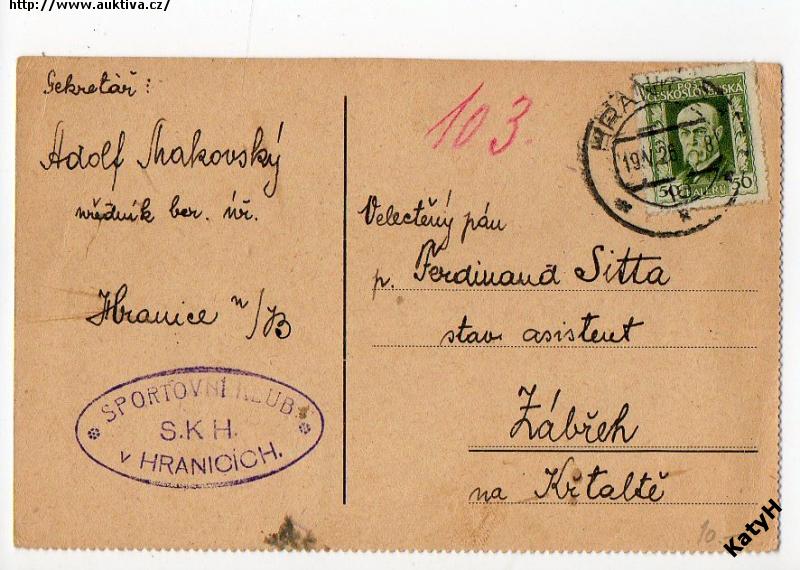 http://www.auktiva.cz/
Sekretář:
Adolf Makovský
úředník ber. úř.
Hranice n/B
SPORTOVNÍ KLUB
S.K H.
v HRANICÍCH.
103.
HRANICE
19.V.26
POŠTA
ČESKOSLOVENSKÁ
50 HALÉŘŮ 50
Velectěný pán
p. Ferdinand Sitta
stav. asistent
Zábřeh
na
10.-
KatyH